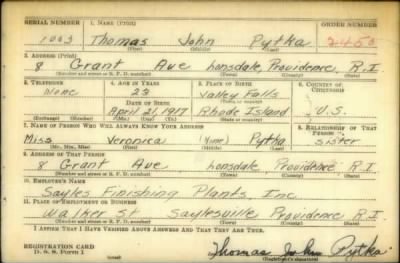 SERIAL NUMBER 1. NAME (Print) ORDER NUMBER
1003 Thomas John Pytka 2450
(First) (Middle) (Last)
3. ADDRESS (Print)
8 Grant Ave Lonsdale, Providence, R.I
(Number and street or R. F. D. number) (Town) (County) (State)
3. TELEPHONE 4. AGE IN YEARS 5. PLACE OF BIRTH 6. COUNTRY OF CITIZENSHIP
None 23 Valley Falls
DATE OF BIRTH (Town or county)
April 21, 1917 Rhode Island U.S.
(Exchange) (Number) (Mo.) (Day) (Yr.) (State or country)
7. NAME OF PERSON WHO WILL ALWAYS KNOW YOUR ADDRESS 8. RELATIONSHIP OF THAT PERSON
Miss Veronica (None) Pytka sister
(Mr., Mrs., Miss) (First) (Middle) (Last)
9. ADDRESS OF THAT PERSON
8 Grant Ave Lonsdale, Providence R.I.
(Number and street or R. F. D. number) (Town) (County) (State)
10. EMPLOYER'S NAME
Sayles Finishing Plants, Inc.
11. PLACE OF EMPLOYMENT OR BUSINESS
Walker St Saylesville Providence R.I.
(Number and street or R. F. D. number) (Town) (County) (State)
I AFFIRM THAT I HAVE VERIFIED ABOVE ANSWERS AND THAT THEY ARE TRUE.
REGISTRATION CARD
D. S. S. Form 1 Thomas John Pytka
(Registrant's signature)